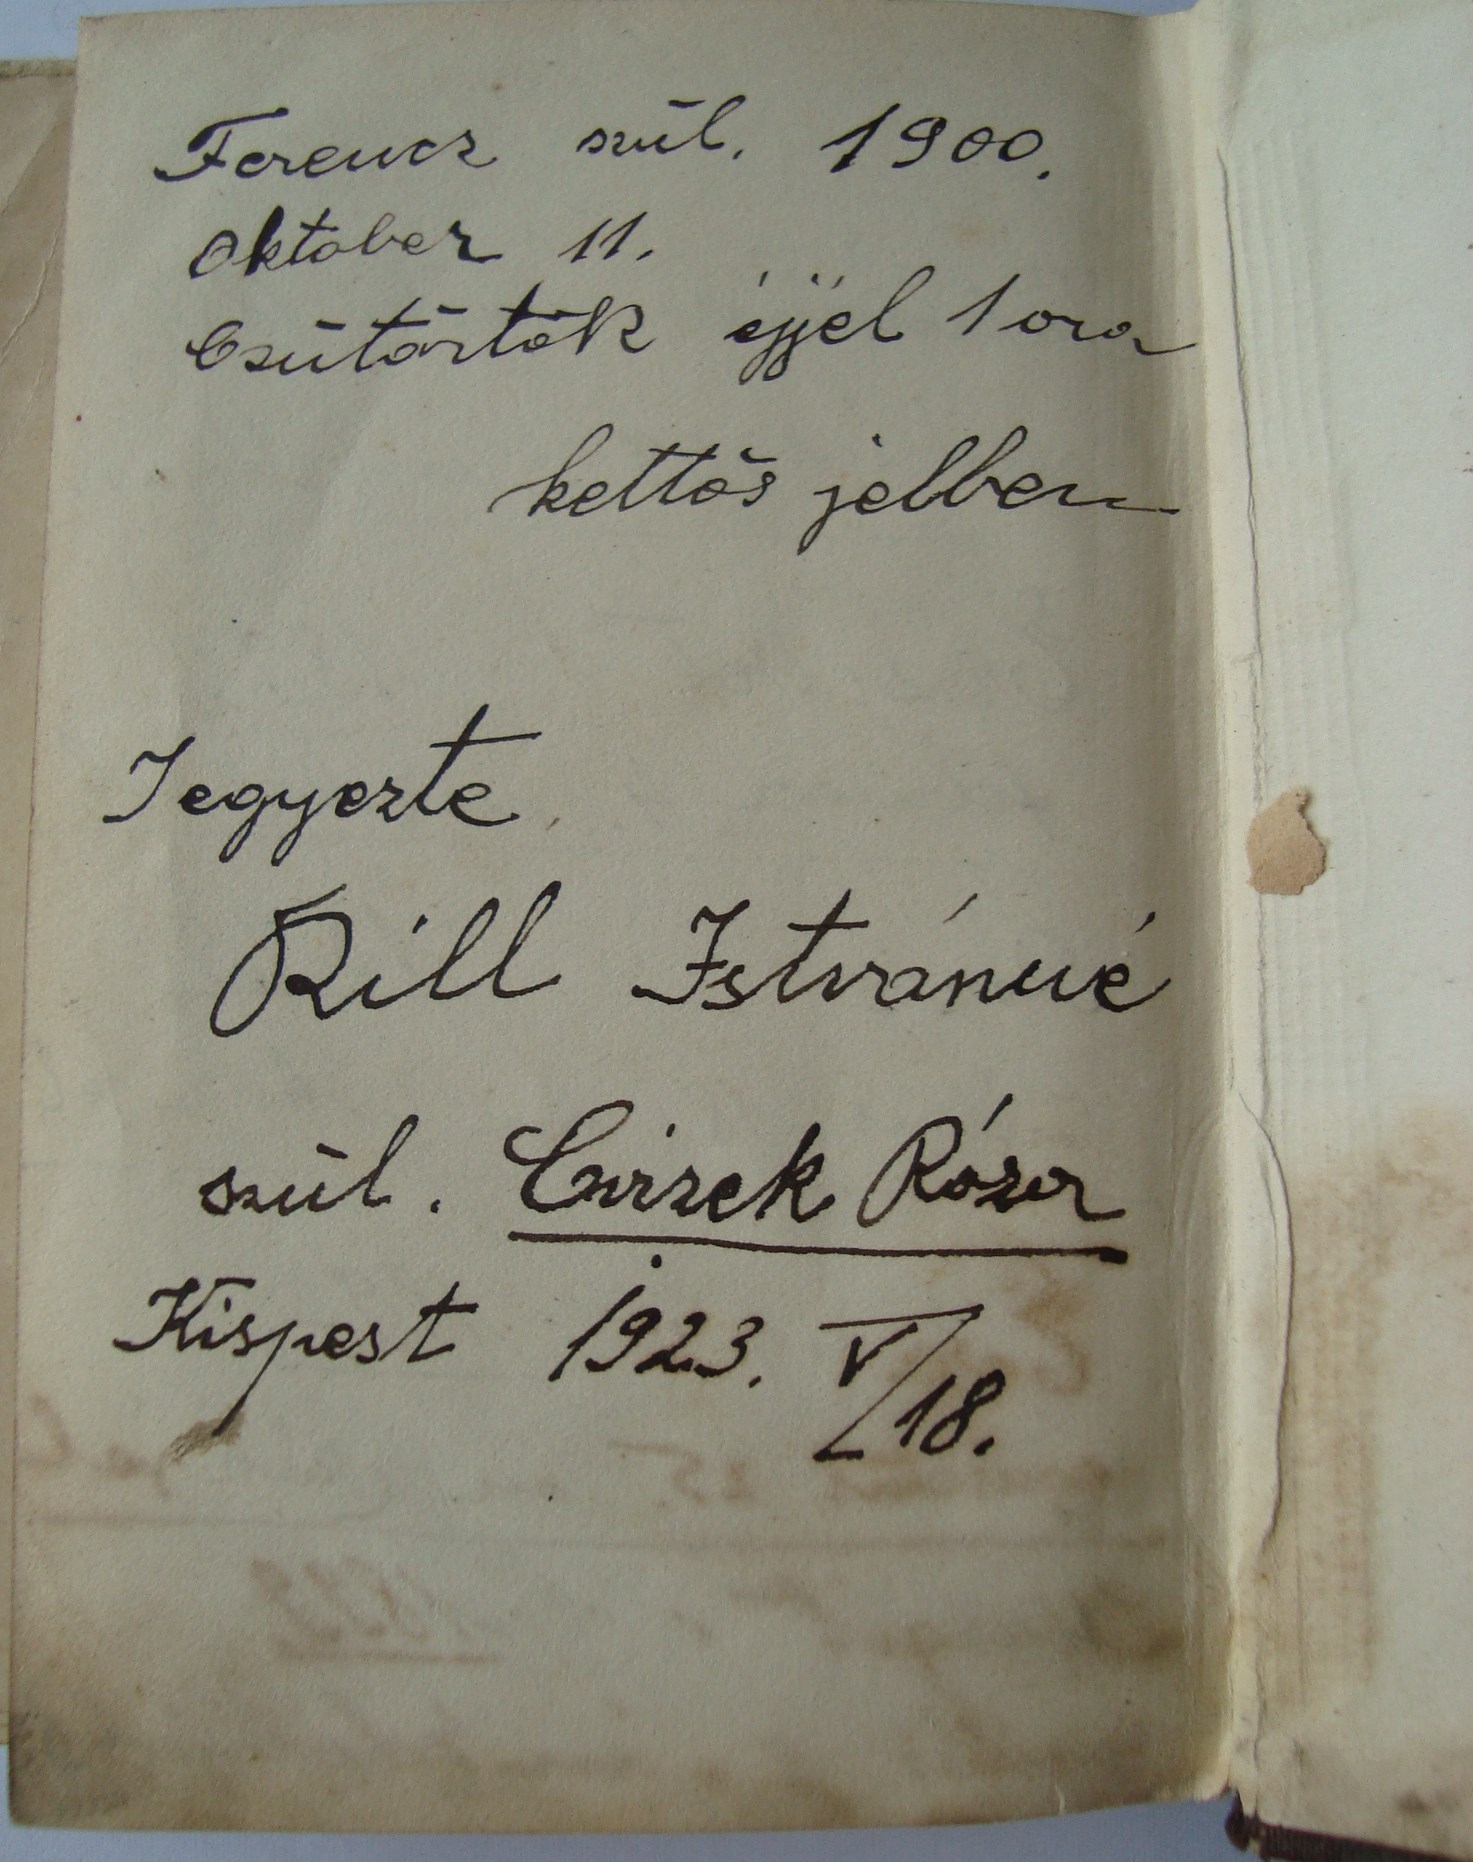 Ferencz szül. 1900.
Oktober 11.
Csütörtök éjjel 1 ora
kettős jelben
Jegyezte
Rill Istvánné
szül. Czizek Róza
Kispest 1923. V/18.